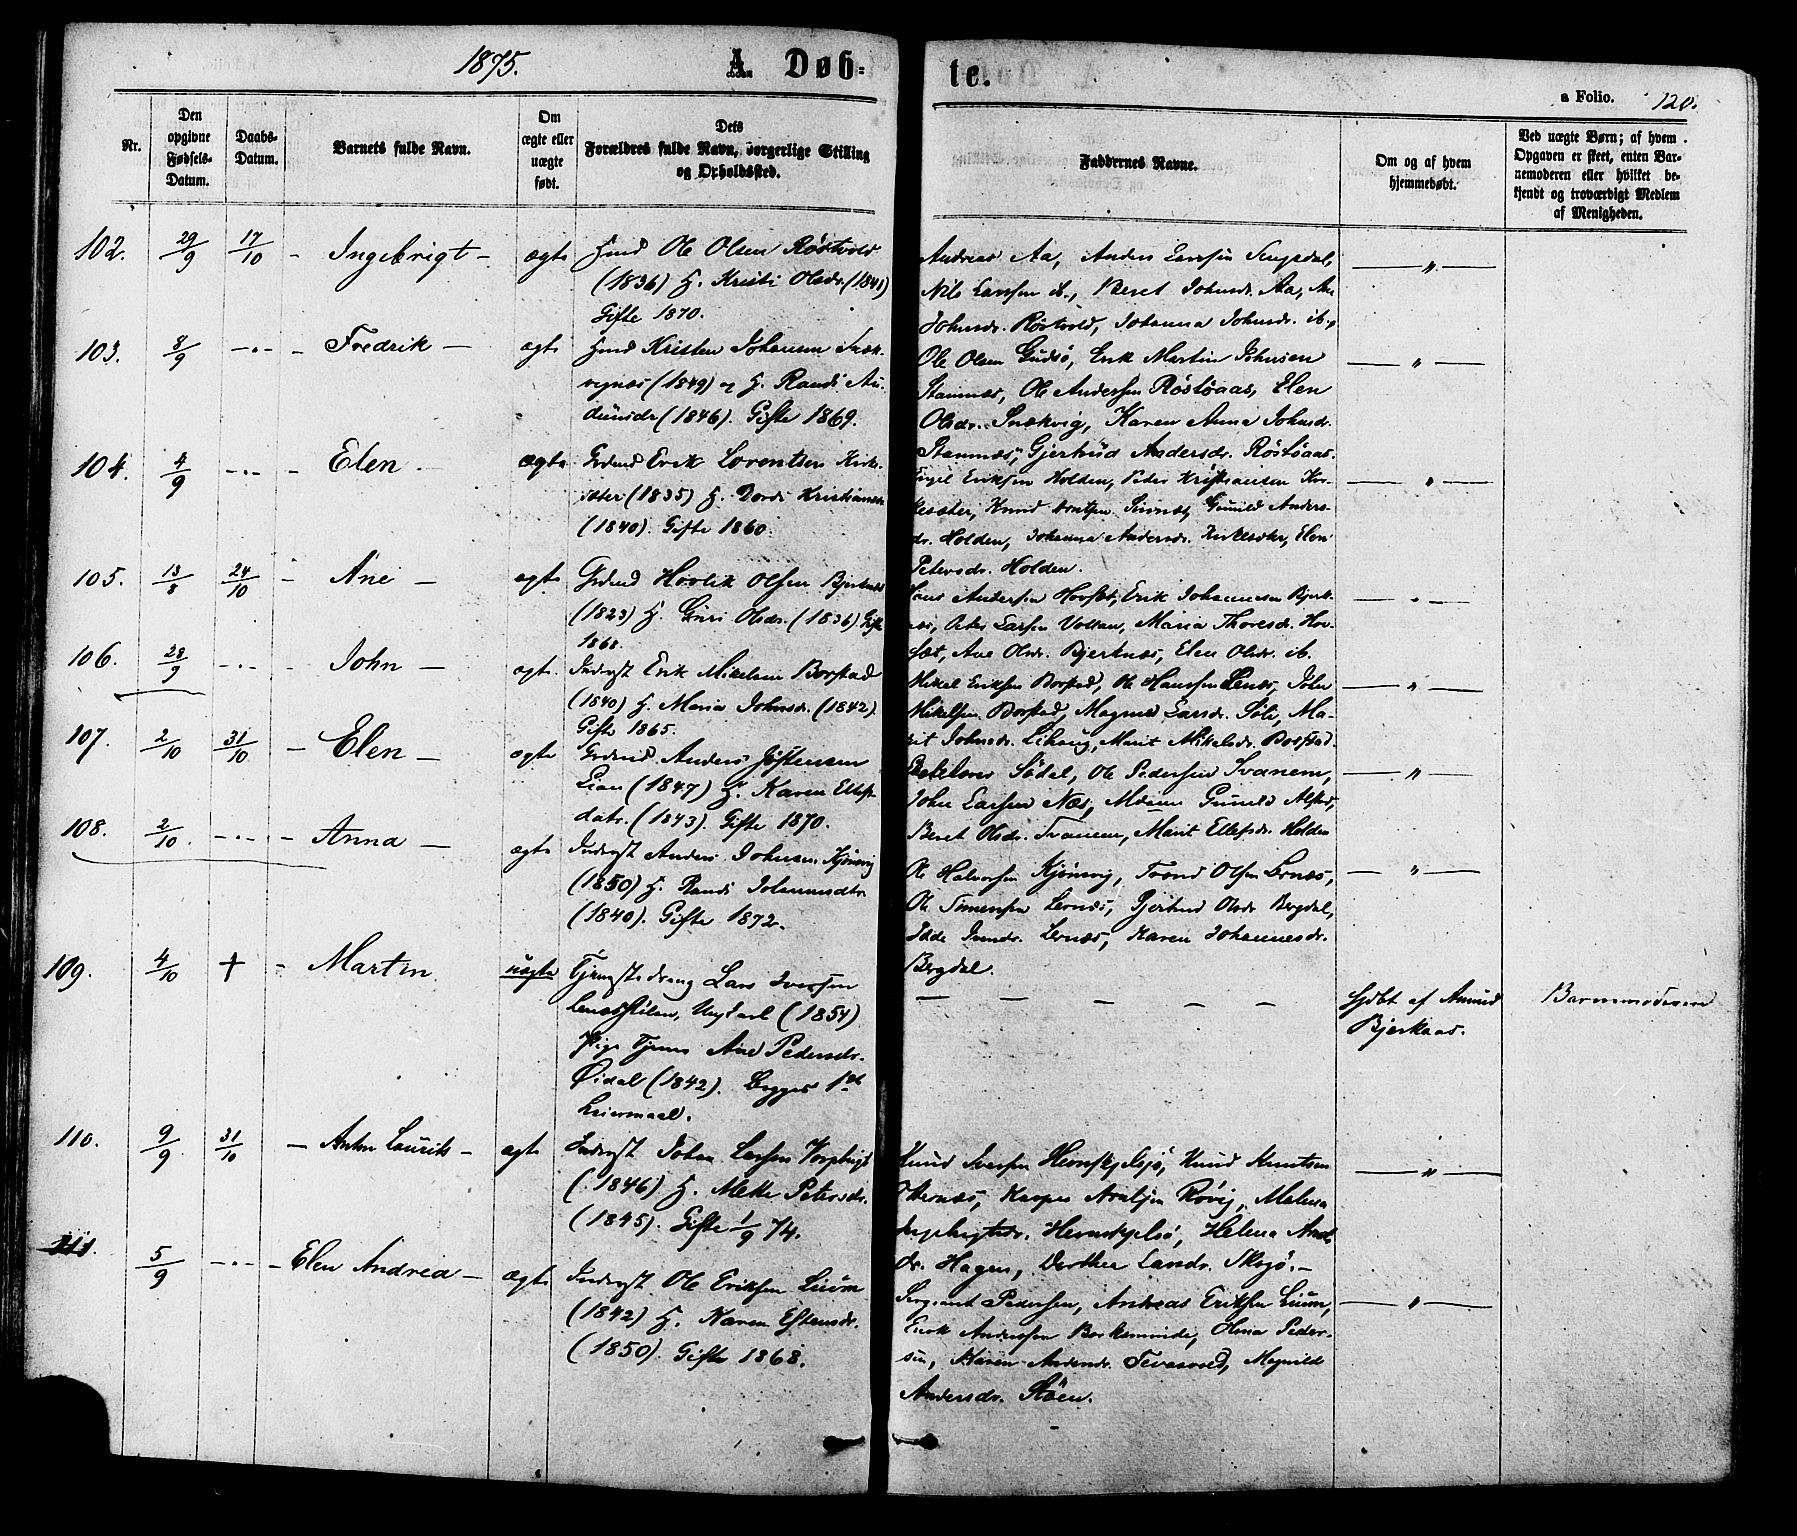 1875.
A Døb-
te.
a Folio. 120.
Nr.
Den opgivne Fødsels-Datum.
Daabs-Datum.
Barnets fulde Navn.
Om ægte eller uægte født.
Dets Forældres fulde Navn, borgerlige Stilling og Opholdssted.
Faddernes Navne.
Om og af hvem hjemmedøbt.
Ved uægte Børn; af hvem Opgaven er skeet, enten Barnemoderen eller hvilket bekjendt og troværdigt Medlem af Menigheden.
102. 29/9 17/10 - Ingebrigt - ægte
Ole Olsen Røstvold
(1836) H. Kristi Olsdr. (1841)
Gifte 1870.
Andreas Aa, Anders Larssen
Nils Larssen ib., Beret Johnsdr. Aa,
Johnsdr. Røstvold, Johanna Johnsdr. ib.,
103. 8/9 -.- - Fredrik - ægte
Kristen Johansen
(1849) og H. Randi Au-
dunsdr (1846). Gifte 1869.
Ole Olsen Gudsø, Erik Martin Johnsen
Stamnes, Ole Andersen Røstøaas, Elen
Olsdr. Snækvig, Karen Anna Johnsdr.
Stamnes, Gjertrud Andersdr. Røstøaas.
104. 4/9 -.- - Elen - ægte
Erik Lorentsen Kirk-
sæter (1835) H. Dordi Kristiansdr
(1840). Gifte 1860.
Eriksen Holden, Peder Kristiansen Kir-
kesæter, Knud Arntsen Gunild Anders-
dr. Holden, Johanna Andersdr. Kirkesæter, Elen
Petersdr. Holden.
105. 13/8 24/10 - Ane - ægte
Olsen Bjerknes
(1823) H. Guri Olsdr. (1836) Gifte
1868.
Hans Andersen Hovsæt, Erik Johannesen Bjerk-
næs, Peter Larsen Vollan, Maria Thoresdr. Hov-
sæt, Ane Olsdr. Bjerknæs, Elen Olsdr. ib.
106. 28/9 -.- - John - ægte
Inderst Erik Mikelsen Borstad
(1840) H. Maria Johnsdr. (1842).
Gifte 1865.
Mikel Eriksen Borstad, Ole Hanssen Lenæs, John
Mikelsen Borstad, Magnild Larsdr. Søli, Ma-
rit Johnsdr. Lihaug, Marit Mikelsdr. Borstad.
107. 2/10 31/10 - Elen - ægte
Anders Jostensen
Lian (1847) H. Karen Ellefs-
datr. (1843). Gifte 1870.
Sødal, Ole Pedersen Svanem,
John Larsen Næs, Gunild
Beret Olsdr. Svanem, Marit Ellefsdr. Holden
108. 2/10 -.- - Anna - ægte
Inderst Anders Johnsen Kjønsvig
(1850) H. Randi Johannesdtr
(1840). Gifte 1872.
Ole Halvorsen Kjønsvig, Trond Olsen Lernæs,
Ole Lernæs, Gjertrud Olsdr Bergdal,
Lernæs, Karen Johannesdr.
Bergdal.
109. 4/10 + - Martin uægte
Tjenestedreng Lars Iversen
Ungkarl (1854)
Pige Tjener Ane Pedersdr.
Øidal (1842). Begges 1ste
Leiermaal.
Hjdbt af Amund
Bjerkaas.
Barnemoderen
110. 9/9 31/10 - Anton Laurits - ægte
Inderst Johan Larsen
(1846) H. Mette Petersdr.
(1845). Gifte 1/9 74.
Knud Iversen Hemskjelsjø, Knud Knutsen
Kasper Arntsen Røvig, Malena
Ingebrigtsdr. Hemskjelsjø, Helena Arnts-
dr. Hagen, Dorthea Larsdr. Skogø.-
111. 5/9 -.- - Elen Andrea - ægte
Inderst Ole Eriksen Lium
(1842) H. Karen Estensdr.
(1850). Gifte 1868.
Sergeant Pedersen, Andreas Eriksen Lium,
Erik Anderssen Borkemunde, Peder-
sen, Karen Andersdr. Magnild
Andersdr. Støen.